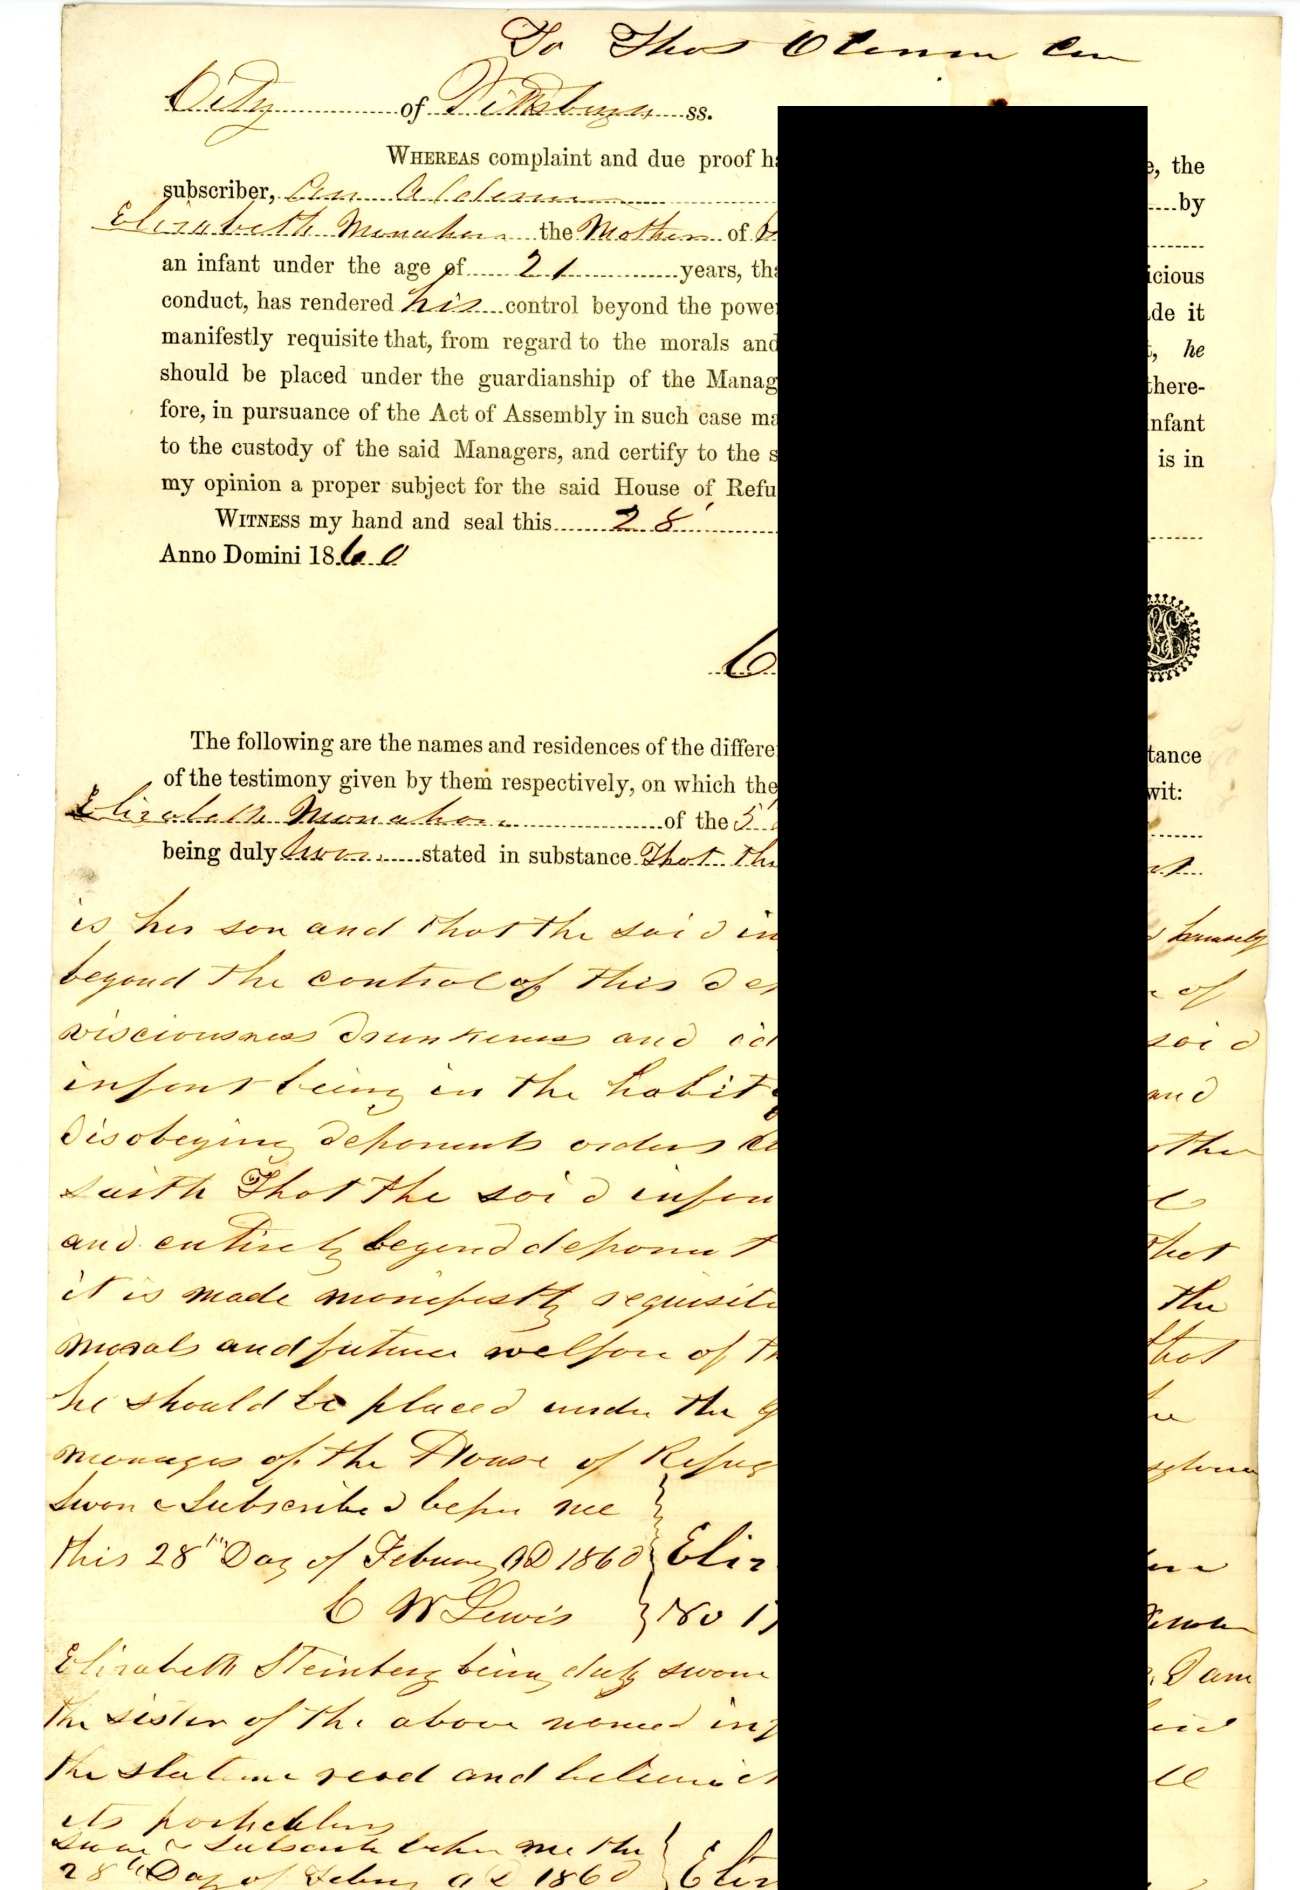 To Thos
City of Pittsburgh ss.
WHEREAS complaint and due proof ha e, the
subscriber, an Alderman by
Elizabeth Monahan the Mother of
an infant under the age of 21 years, tha icious
conduct, has rendered his control beyond the powe de it
manifestly requisite that, from regard to the morals and t, he
should be placed under the guardianship of the Manag there-
fore, in pursuance of the Act of Assembly in such case ma nfant
to the custody of the said Managers, and certify to the s is in
my opinion a proper subject for the said House of Refu
WITNESS my hand and seal this 28'
Anno Domini 1860
C
The following are the names and residences of the differe tance
of the testimony given by them respectively, on which the wit:
Elizabeth Monahan of the 5'
being duly sworn stated in substance That the
is her son and that the said in himself
beyond the control of this de of
visciousness drunkeness and id said
infant being in the habit and
disobeying deponents orders
saith That the said infan
and entirely beyond deponent that
it is made manifestly requisite the
morals and future welfare of th that
he should be placed under the g
manages of the House of Refug
Sworn & Subscribed before me
this 28th Day of February AD 1860 Eliz
C W Lewis No 17
Elizabeth Steinberg being duly sworn I am
the sister of the above named inf
the statement read and believe it
its particulars
Sworn & Subscribe before me this
28th Day of Febury AD 1860 Eliz